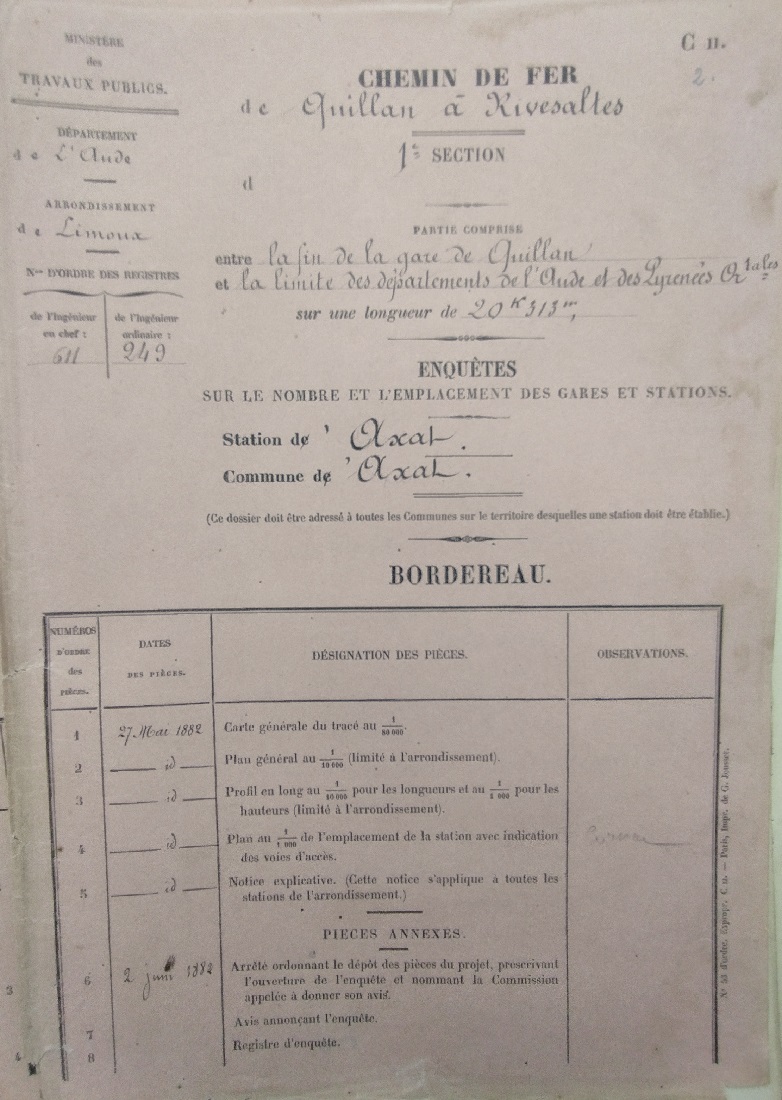 MINISTÈRE
des
TRAVAUX PUBLICS.
DÉPARTEMENT
de L'Aude
ARRONDISSEMENT
de Limoux
Nos D'ORDRE DES REGISTRES
de l'Ingénieur en chef :
611
de l'Ingénieur ordinaire :
249
C n.
2.
CHEMIN DE FER
de Quillan à Rivesaltes
1e SECTION
d
PARTIE COMPRISE
entre la fin de la gare de Quillan
et la limite des départements de l'Aude et des Pyrenées Ortales
sur une longueur de 20K313m,
ENQUÊTES
SUR LE NOMBRE ET L'EMPLACEMENT DES GARES ET STATIONS.
Station de 'Axat.
Commune de 'Axat.
(Ce dossier doit être adressé à toutes les Communes sur le territoire desquelles une station doit être établie.)
BORDEREAU.
NUMÉROS D'ORDRE des PIÈCES.
DATES DES PIÈCES.
DÉSIGNATION DES PIÈCES.
OBSERVATIONS.
1 27 Mai 1882 Carte générale du tracé au 1/80 000.
2 id Plan général au 1/10 000 (limité à l'arrondissement).
3 id Profil en long au 1/10 000 pour les longueurs et au 1/1 000 pour les
hauteurs (limité à l'arrondissement).
4 id Plan au 1/1 000 de l'emplacement de la station avec indication
des voies d'accès.
5 id Notice explicative. (Cette notice s'applique à toutes les
stations de l'arrondissement.)
PIÈCES ANNEXES.
6 2 juin 1882 Arrêté ordonnant le dépôt des pièces du projet, prescrivant
l'ouverture de l'enquête et nommant la Commission
appelée à donner son avis.
7 Avis annonçant l'enquête.
8 Registre d'enquête.
No 53 d'ordre. Expropr. C n. — Paris, Impr. de G. Jousset.
3
4